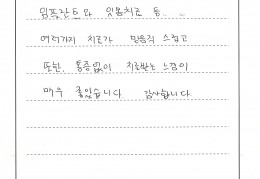 임프란트와 잇몸치료 등.
여러가지 치료가 믿음직 스럽고
또한, 통증없이 치료받는 느낌이
매우 좋았습니다. 감사합니다.